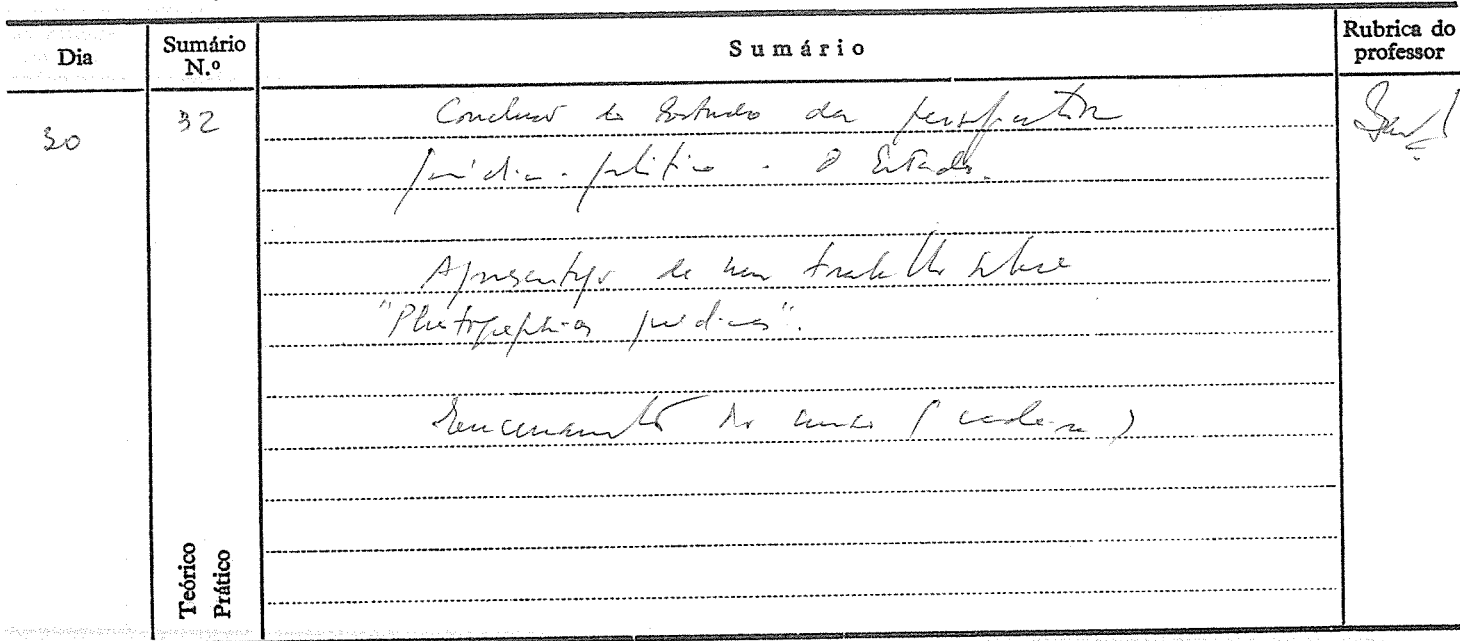 Dia
Sumário N.º
Sumário
Rubrica do professor
30
32
Conclusão do Estudo da perspectiva
jurídico-política. O Estado.
Apresentação de um trabalho sobre
"Photographias jurídicas".
Encerramento do curso (cadeira)
Teórico
Prático